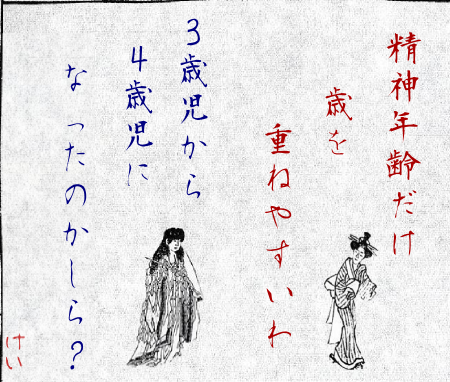 精神年齢だけ
歳を
重ねやすいわ
3歳児から
4歳児に
なったのかしら?
けい